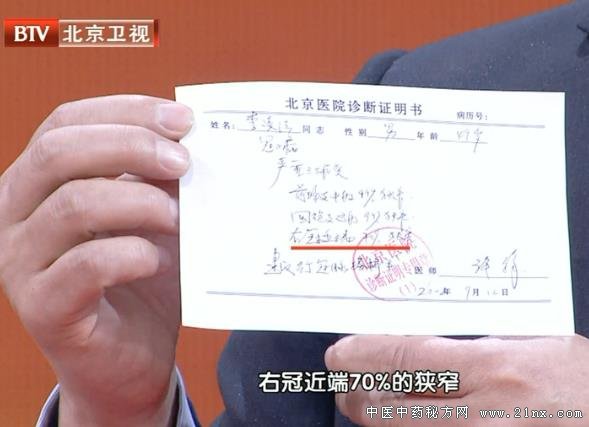 BTV 北京卫视
北京医院诊断证明书
病历号:
姓名: 李 同志 性别 男 年龄
冠心病
严重三
前降支中段 99% 狭窄
回旋支 99% 狭窄
右冠近端 70% 狭窄
建议行冠脉
医师
北京医院
诊断证明专用章
(1)
年 9月12日
右冠近端70%的狭窄
中医中药秘方网 www.21nx.com